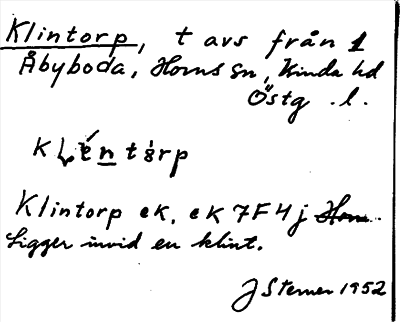 Klintorp, t avs från 1
Åbyboda, Horns sn, Kinda hd
Östg. l.
Klintorp ek, ek 7F4j
Ligger invid en klint.
J Sterner 1952